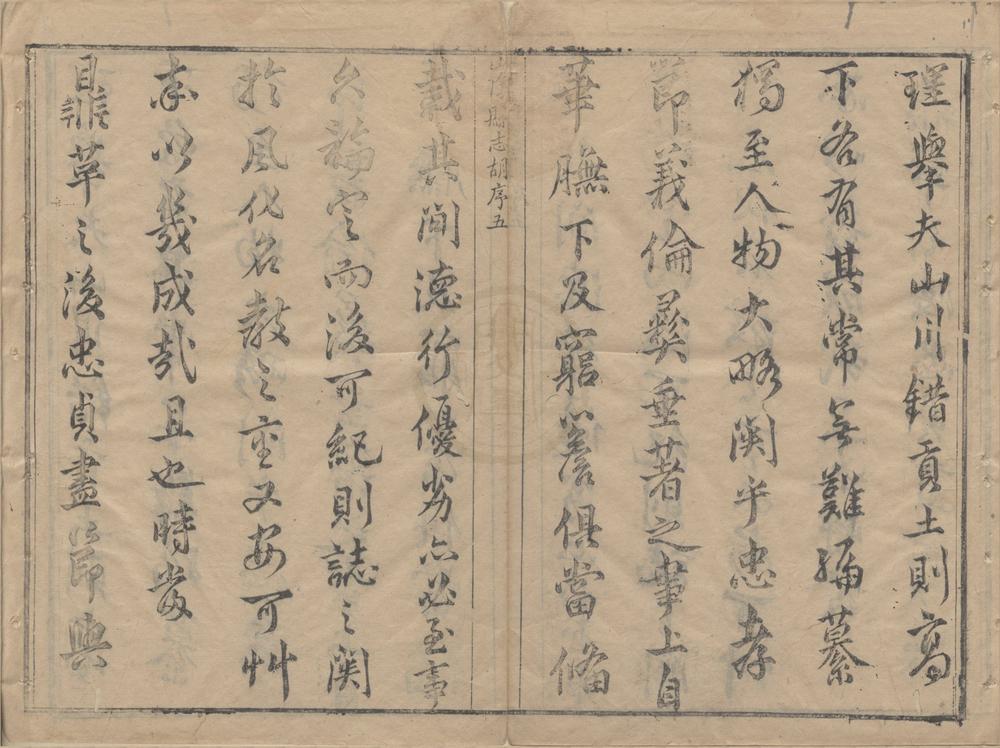 瑾舉夫山川錯貢土則高
下各有其常無難編纂
獨至人物大略関乎忠孝
節義倫彝垂著之事上自
華膴下及窮簷俱當偹
山陰縣志胡序五
載其间德行優劣亦必至事
久論定而後可紀則誌之関
於風化名教之重又安可艸
率以幾成哉且也時當
鼎革之後忠貞盡節與